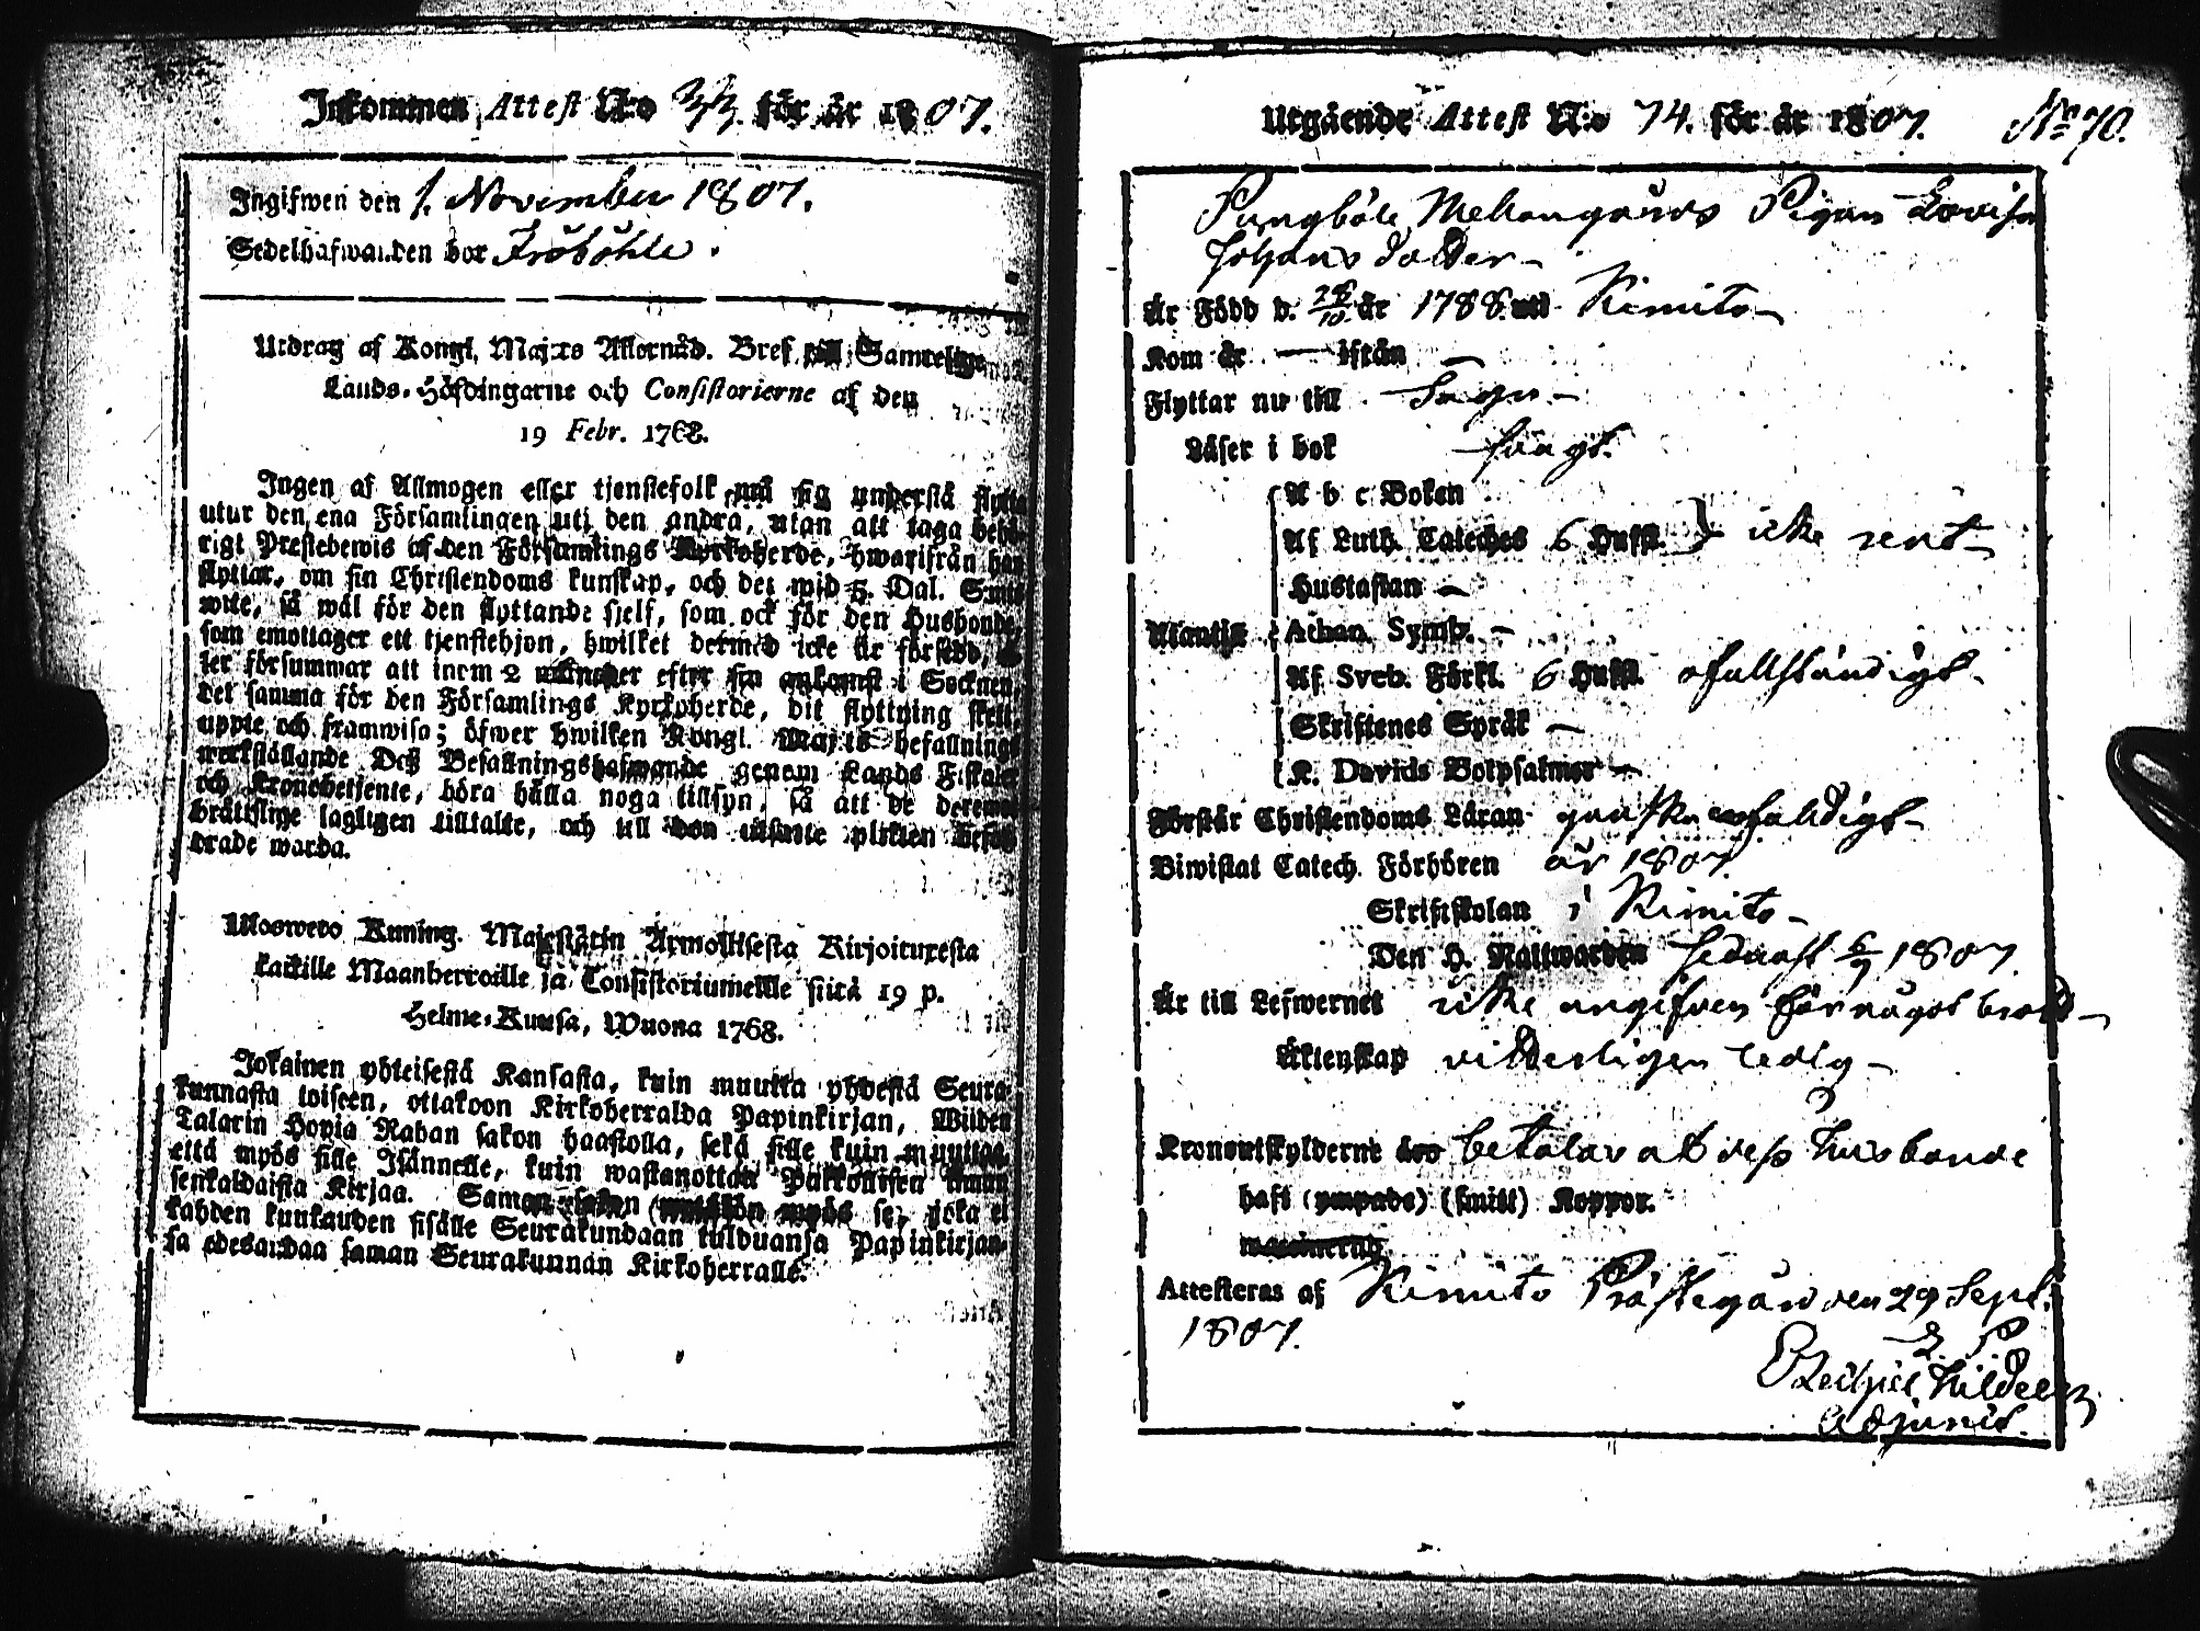 Inkommen Attest N:o 33. för år 1807.
Ingifwen den 1. November 1807.
Sedelhafwanden bor Fröböhle.
Utdrag af Kongl. Maj:ts Allernåd. Bref till Samtelige
Lands-Höfdingarne och Consistorierne af den
19 Febr. 1768.
Ingen af Allmogen eller tjenstefolk må sig understå flytta
utur den ena Församlingen uti den andra, utan att taga behö-
rigt Prestebewis af den Församlings Kyrkoherde, hwarifrån han
flyttar, om sin Christendoms kunskap, och det wid 5. Dal. S:mts
wite, så wäl för den flyttande sjelf, som ock för den Husbonde,
som emottager ett tjenstehjon, hwilket dermed icke är försedd, el-
ler försummar att inom 2 månader efter sin ankomst i Socknen,
det samma för den Församlings Kyrkoherde, dit flyttning skett,
uppte och framwisa; öfwer hwilken Kongl. Maj:ts befallnings
werkställande Deß Befallningshafwande genom Lands Fiskaler
och Kronobetjente, böra hålla noga tillsyn, så att de deremot
bråttslige lagligen tilltalte, och till den utsatte plikten befor-
drade warda.
Uloswedo Kuning. Majestätin Armollisesta Kirjoituxesta
kaikille Maanherroille ja Consistoriumeille siitä 19 p.
Helme-Kuusa, Wuona 1768.
Jokainen yhteisestä Kansasta, kuin muutta yhdestä Seura-
kunnasta toiseen, ottakoon Kirkoherralda Papinkirjan, Wiiden
Talarin Hopia Rahan sakon haastolla, sekä sille kuin muuttaa,
että myös sille Isännelle, kuin wastanottaa Palkollisen ilman
senkaldaista Kirjaa. Saman sakon (wetäkön myös se, joka ei
kahden kunkauden sisälle Seurakundaan tulduansa Papinkirjan-
sa edesandaa saman Seurakunnan Kirkoherralle.
Utgående Attest N:o 74. för år 1807. Nr 70.
Pungböle Mellangårds Pigan Lovisa
Johans dotter
Är Född d. 28/10 år 1788. uti Kimito
Kom år — ifrån —
Flyttar nu till Sagu
Läser i bok svagt.
A b c Boken
Af Luth. Cateches 6 Hufst. } icke rent
Hustaflan —
Utantill Athan. Symb. —
Af Sveb. Förkl. 6 Hufst. ofullständigt.
Skriftenes Språk —
K. Davids Botpsalmer —
Förstår Christendoms Läran ganska enfaldigt
Biwistat Catech. Förhören år 1807.
Skriftskolan i Kimito
Den H. Nattwarden sednast 6/9 1807.
Är till Lefwernet icke angifven för något brott
Äktenskap vitterligen ledig
Kronoutskylderne äro betalar at dess husbonde
haft (ympade) (smitt) Koppor.
Attesteras af Kimito Prästegård den 29 Sept.
1807.
Adjunct.